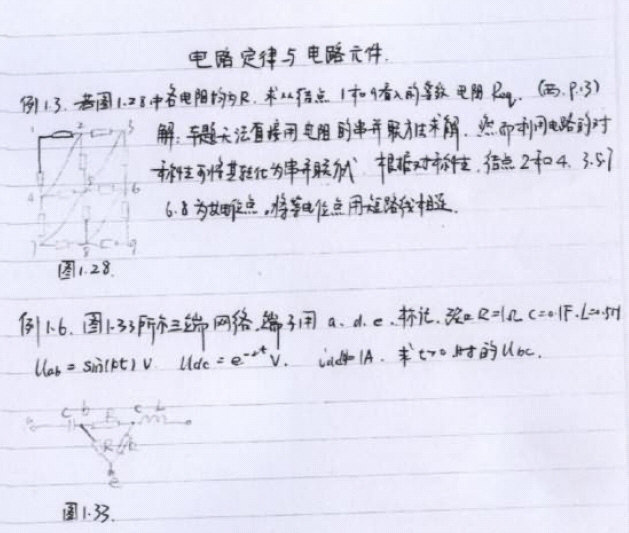 电路定律与电路元件.
例1.3. 若图1.28中各电阻均为R. 求从结点 1和9看入的等效电阻Req. (西.P.3)
解: 本题无法直接用电阻的串并联方法求解. 然即利用电路的对
称性可将其转化为串并联方式. 根据对称性. 结点2和4. 3.5.7
6.8为等电位点,将等电位点用短路线相连.
1 2 3
4 5 6
7 8 9
图1.28.
例1.6. 图1.33所示三端网络,端子用 a. d. e. 标记. 设R=1Ω C=0.1F. L=0.5H
Uab = sin(πt) V Udc = e^-2t V. 1A. 求t>0时的Ubc.
C b R c L
R R
e
图1.33.